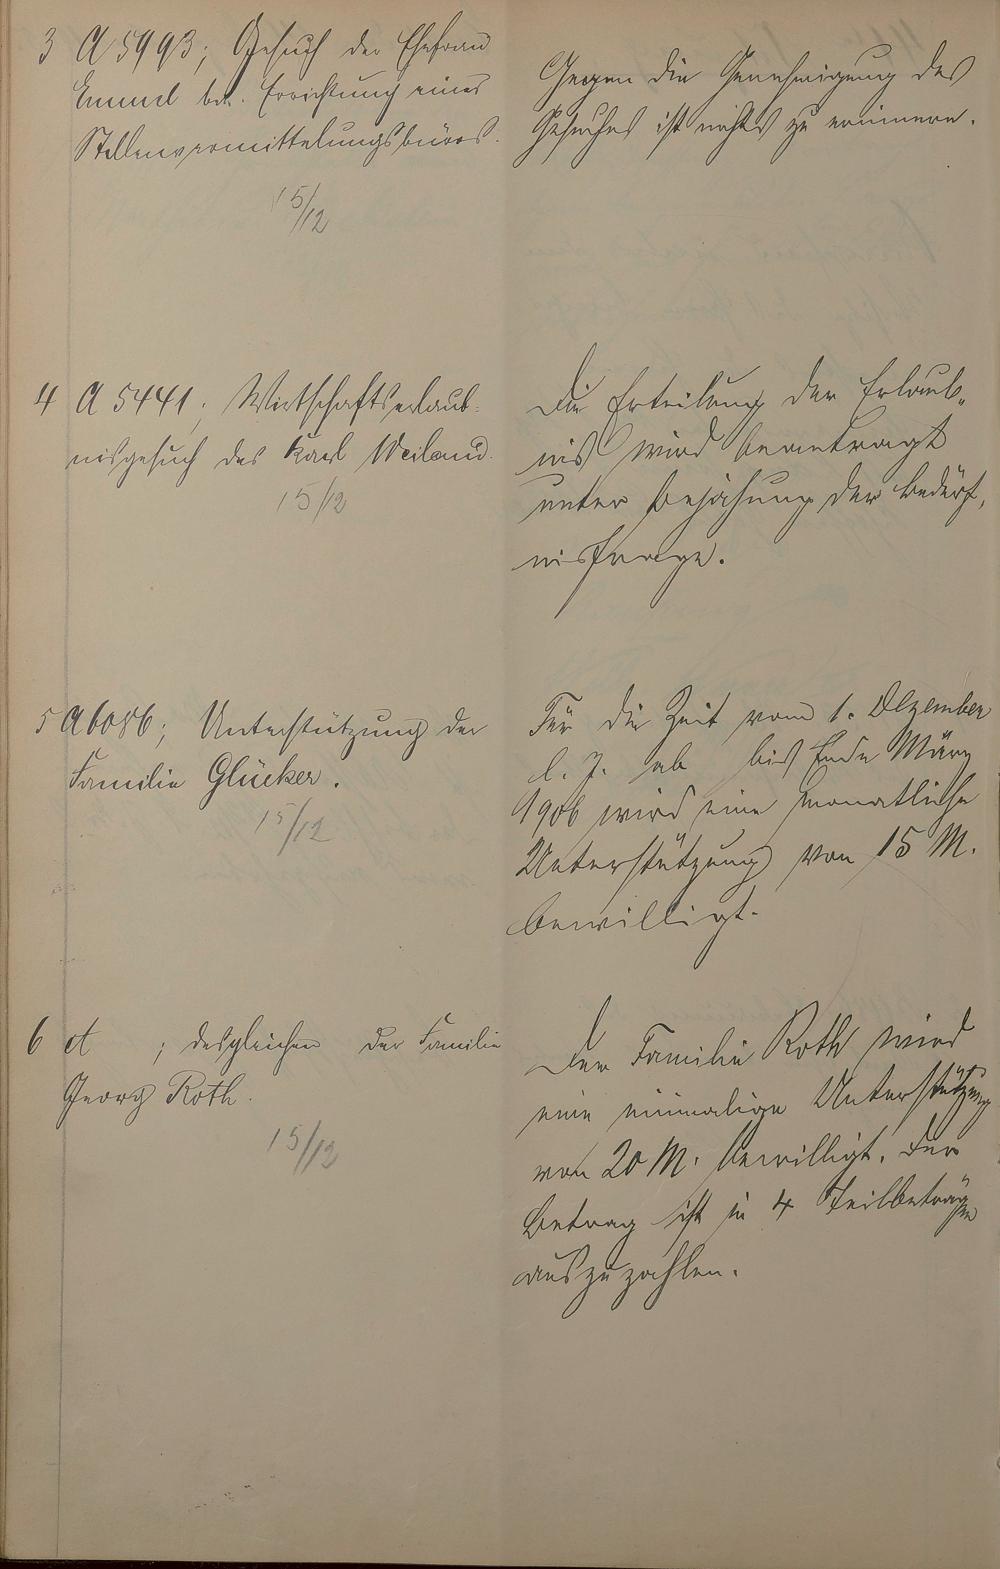 3 A 5993; Gesuch der Ehefrau
Emmel btr. Errichtung eines
Stellenvermittelungsbüros.
15/12
Gegen die Genehmigung des
Gesuches ist nichts zu erinnern.
4 A 5441; Wirtschaftserlaub-
nisgesuch des Karl Weiland.
15/12
Die Erteilung der Erlaub-
nis wird beantragt
unter Bejahung der Bedürf-
nisfrage.
5 A 6086; Unterstützung der
Familie Glücker.
15/12
Für die Zeit vom 1. Dezember
l. J. ab bis Ende März
1906 wird eine monatliche
Unterstützung von 15 M.
bewilligt.
6 A ; desgleichen der Familie
Georg Roth.
15/12
Der Familie Roth wird
eine einmalige Unterstützung
von 20 M. bewilligt. Der
Betrag ist in 4 Teilbeträgen
auszuzahlen.